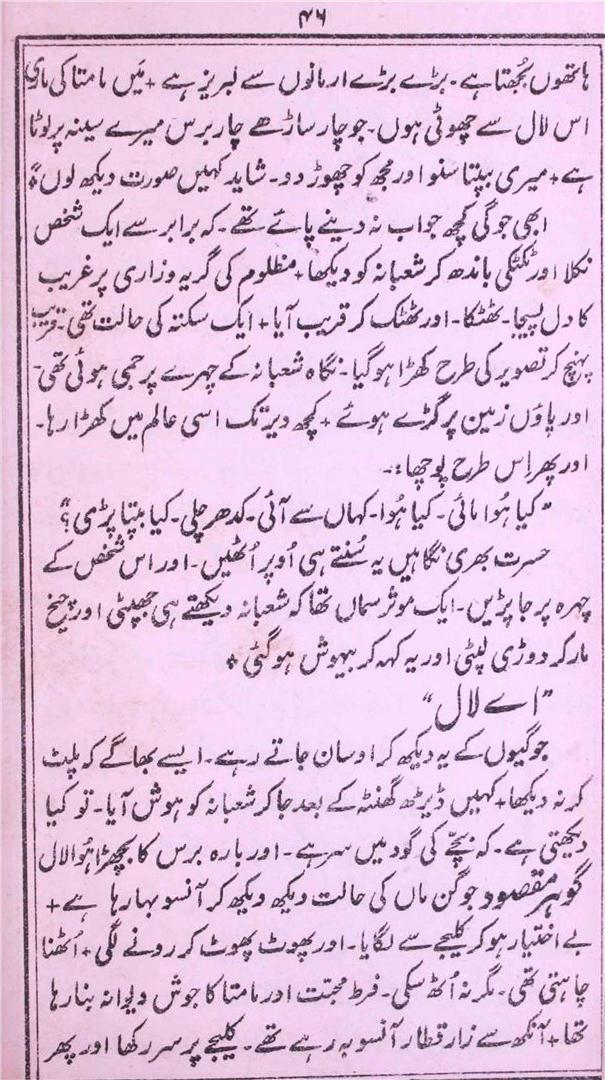 ۴۶
ہاتھوں بُجھتا ہے۔ بڑے بڑے ارمانوں سے لبریز ہے + مَیں مامتا کی ماری
اس لال سے چھوٹی ہوں۔ جو چار ساڑھے چار برس میرے سینہ پر لوٹا
ہے + میری بپتا سنو اور مجھ کو چھوڑ دو۔ شاید کہیں صورت دیکھ لوں"
ابھی جوگی کچھ جواب نہ دینے پائے تھے۔ کہ برابر سے ایک شخص
نکلا اور ٹکٹکی باندھ کر شعبانہ کو دیکھا + مظلوم کی گریہ وزاری پر غریب
کا دل پسیجا۔ ٹھٹکا۔ اور ٹھٹک کر قریب آیا + ایک سکتہ کی حالت تھی۔ قریب
پہنچ کر تصویر کی طرح کھڑا ہو گیا۔ نگاہ شعبانہ کے چہرے پر جمی ہوئی تھی۔
اور پاؤں زمین پر گڑے ہوئے + کچھ دیر تک اسی عالم میں کھڑا رہا۔
اور پھر اس طرح پوچھا:۔
"کیا ہُوا مائی۔ کیا ہُوا۔ کہاں سے آئی۔ کدھر چلی۔ کیا بپتا پڑی؟"
حسرت بھری نگاہیں یہ سُنتے ہی اُوپر اُٹھیں۔ اور اس شخص کے
چہرہ پر جا پڑیں۔ ایک موثر سماں تھا کہ شعبانہ دیکھتے ہی جھپٹی اور چیخ
مار کر دوڑی لپٹی اور یہ کہہ کر بیہوش ہو گئی +
"اے لال"
جوگیوں کے یہ دیکھ کر اوسان جاتے رہے۔ ایسے بھاگے کہ پلٹ
کر نہ دیکھا + کہیں ڈیڑھ گھنٹہ کے بعد جا کر شعبانہ کو ہوش آیا۔ تو کیا
دیکھتی ہے۔ کہ بچّے کی گود میں سر ہے۔ اور بارہ برس کا بچھڑا ہُوا لال
گوہر مقصود جوگن ماں کی حالت دیکھ دیکھ کر آنسو بہا رہا ہے +
بے اختیار ہو کر کلیجے سے لگایا۔ اور پھوٹ پھوٹ کر رونے لگی + اُٹھنا
چاہتی تھی۔ مگر نہ اُٹھ سکی۔ فرط محبت اور مامتا کا جوش دیوانہ بنا رہا
تھا + آنکھ سے زار قطار آنسو بہ رہے تھے۔ کلیجے پر سر رکھا اور پھر